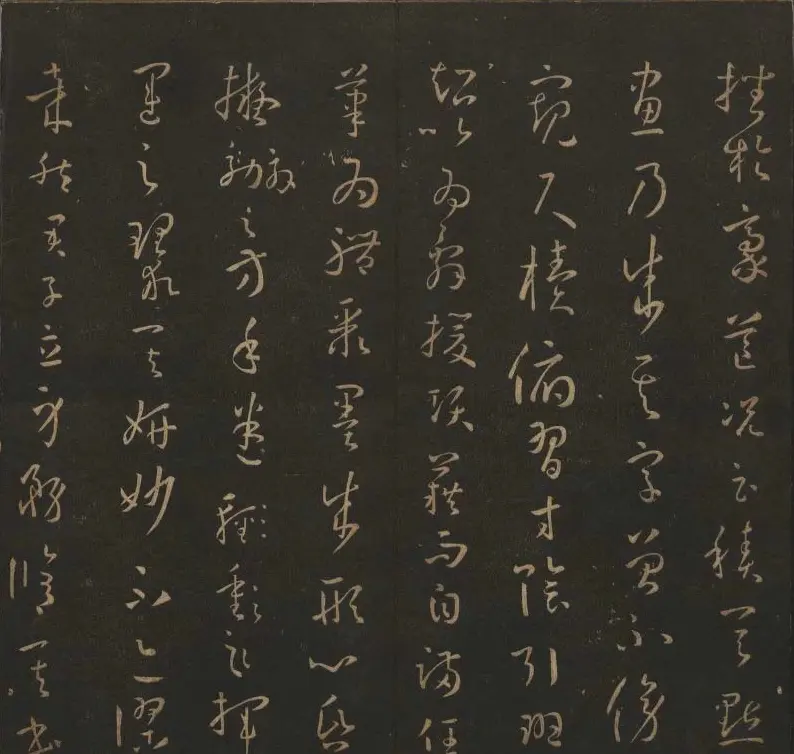 挫於豪芒況云積其點
畫乃成其字曾不傍
窺尺牘俯習寸陰引班
超以為辭援項籍而自滿任
筆為體聚墨成形心昏
擬效之方手迷揮
運之理求其妍妙不亦謬
哉然君子立身務脩其本